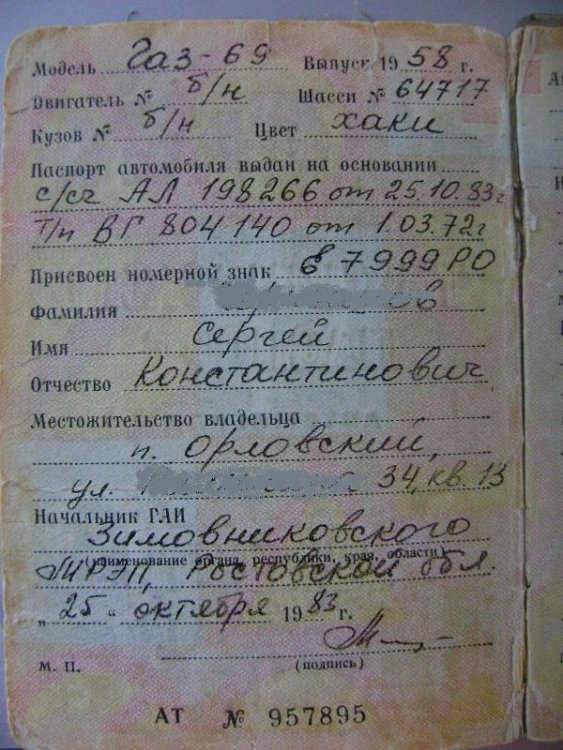 Модель Газ-69 Выпуск 1958 г.
Двигатель № б/н Шасси № 64717
Кузов № б/н Цвет хаки
Паспорт автомобиля выдан на основании
с/сч АЛ 198266 от 25.10.83г
Т/п ВГ 804140 от 1.03.72г
Присвоен номерной знак 7999 РО
Фамилия
Имя Сергей
Отчество Константинович
Местожительство владельца
п. Орловский,
ул. 34, кв. 13
Начальник ГАИ
Зимовниковского
(наименование органа, республики, края, области)
МРЭП, Ростовской обл.
„25“ октября 1983 г.
М. П. (подпись)
АТ № 957895